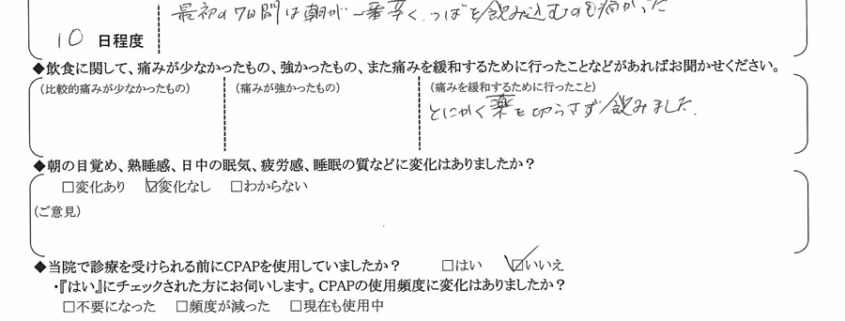 最初の7日間は朝が一番辛く、つばを飲み込むのも痛かった
10 日程度
◆飲食に関して、痛みが少なかったもの、強かったもの、また痛みを緩和するために行ったことなどがあればお聞かせください。
(比較的痛みが少なかったもの) (痛みが強かったもの) (痛みを緩和するために行ったこと)
とにかく薬を切らさず飲みました.
◆朝の目覚め、熟睡感、日中の眠気、疲労感、睡眠の質などに変化はありましたか？
□変化あり ☑変化なし □わからない
(ご意見)
◆当院で診療を受けられる前にCPAPを使用していましたか？ □はい ☑いいえ
・『はい』にチェックされた方にお伺いします。CPAPの使用頻度に変化はありましたか？
□不要になった □頻度が減った □現在も使用中